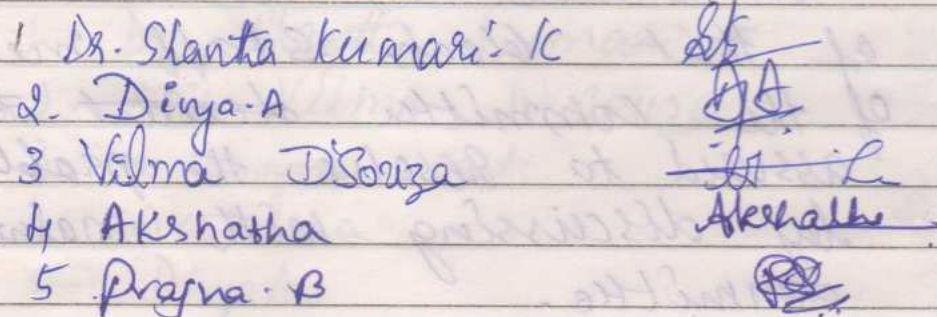 1 Dr. Shanta Kumari. K
2. Divya. A
3 Vilma D'Souza
4 Akshatha Akshatha
5 Prajna. B